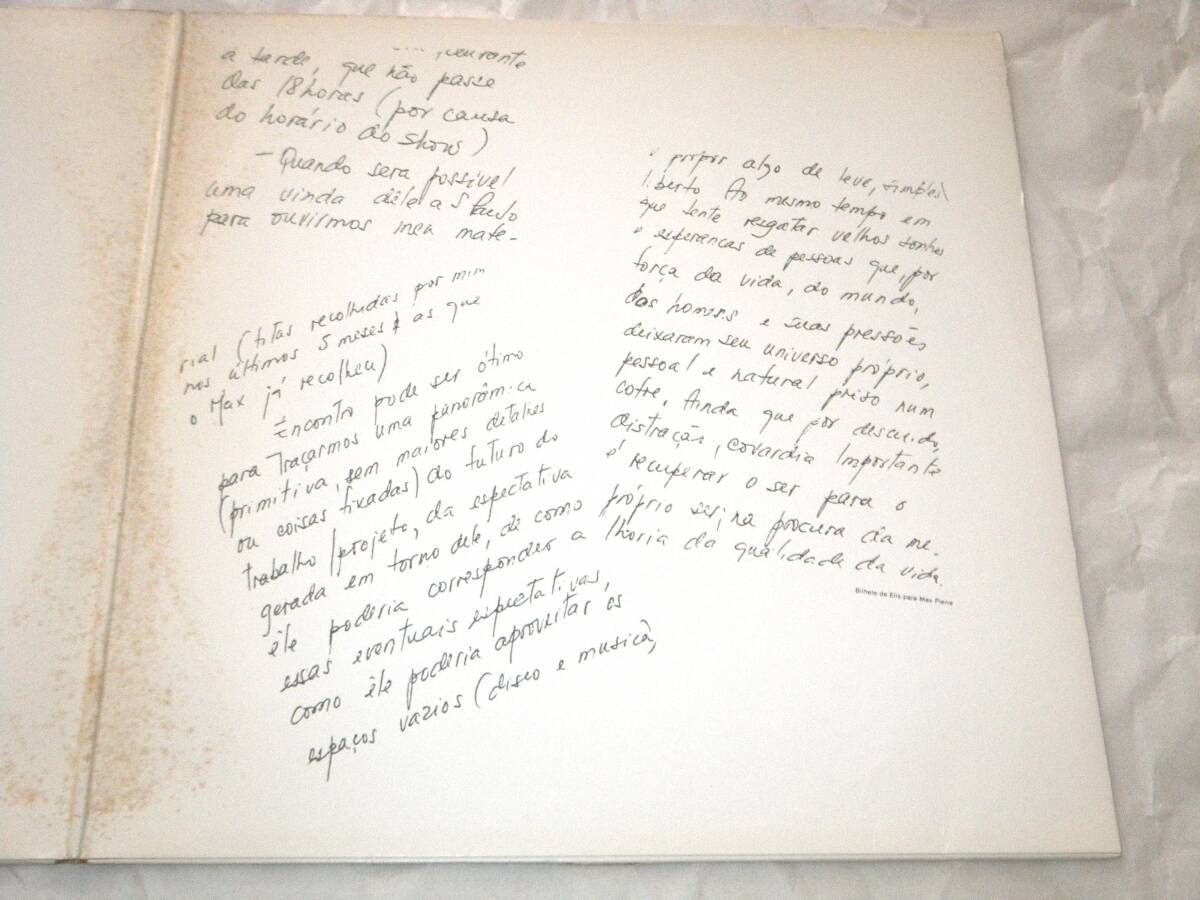 a tarde, que não passe
das 18 horas (por causa
do horário do show)
- Quando sera possivel
uma vinda dêle a S Paulo
para ouvirmos meu mate-
rial (fitas recolhidas por mim
nos últimos 5 meses & as que
o Max já recolheu)
Encontro pode ser ótimo
para traçarmos uma panorâmica
(primitiva, sem maiores detalhes
ou coisas fixadas) do futuro do
trabalho/projeto, da espectativa
gerada em torno dele, de como
êle poderia corresponder a
essas eventuais espectativas,
como êle poderia aproveitar os
espaços vazios (disco e musica,
propor algo de leve, simples
liberto Ao mesmo tempo em
que tente resgatar velhos sonhos
e esperancas de pessoas que, por
força da vida, do mundo,
dos homens e suas pressões
deixaram seu universo próprio,
pessoal e natural prêso num
cofre. Ainda que por descuido,
distração, covardia Importante
é recuperar o ser para o
próprio ser, na procura da me-
lhoria da qualidade da vida.
Bilhete de Elis para Max Pierre